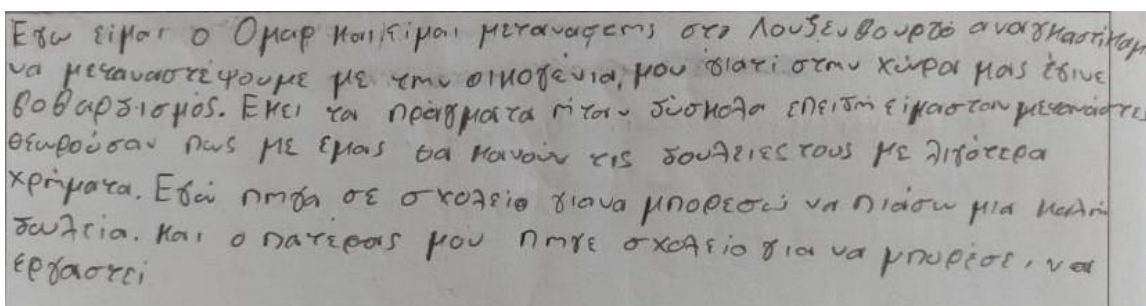 Εγω είμαι ο Ομαρ και είμαι μεταναστης στο Λουξενβουργό αναγκαστίκαμε
να μεταναστέψουμε με την οικογένια μου γιατί στην χώρα μας έγινε
βοθαρδισμός. Εκει τα πράγματα ήταν δύσκολα επειδή είμασταν μετανάστες
θεωρούσαν πως με εμας θα κανούν τις δουλειες τους με λιγότερα
χρήματα. Εγώ πηγα σε σχολείο γιανα μπορεσώ να πιάσω μια καλή
δουλεία. Και ο πατέρας μου πηγε σχολείο για να μπορέσει να
εργαστεί